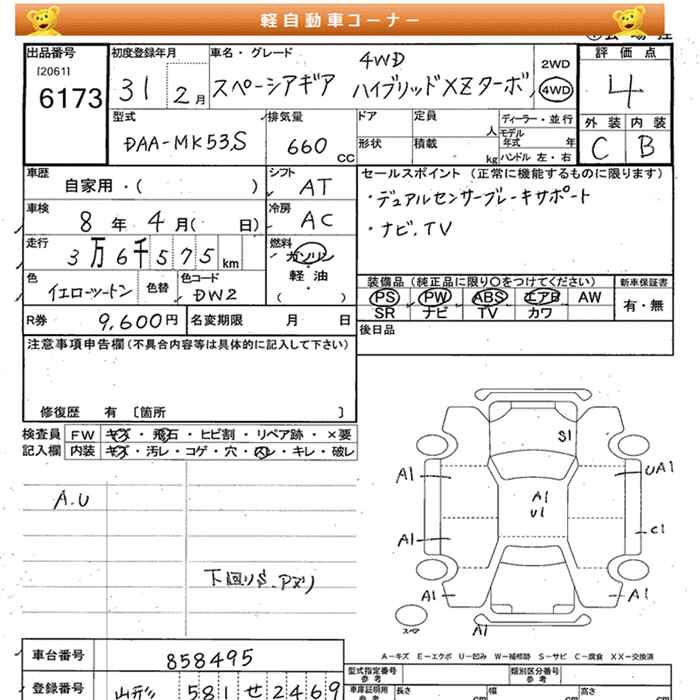 軽自動車コーナー
出品番号 初度登録年月 車名・グレード 評価点
[20611] 6173
31 2月
スペーシアギア 4WD ハイブリッドXZターボ
2WD
4WD
4
型式 排気量 ドア 定員 人 ディーラー・並行
外装 内装
モデル年式 年
DAA-MK53S 660 CC 形状 積載 kg ハンドル 左・右
C B
車歴 自家用・( ) シフト AT
セールスポイント (正常に機能するものに限ります)
・デュアルセンサーブレーキサポート
・ナビ.TV
車検 8年4月( 日) 冷房 AC
走行 3万6千575km 燃料 ガソリン 軽・油 ・ ( )
色 イエローツートン 色替 色コード DW2
装備品 (純正品に限り〇をつけてください) 新車保証書
PS PW ABS エアB AW 有・無
SR ナビ TV カワ
R券 9,600円 名変期限 月 日
後日品
注意事項申告欄 (不具合内容等は具体的に記入して下さい)
修復歴 有 〔箇所 〕
検査員 FW キズ・飛石・ヒビ割・リペア跡・×要
記入欄 内装 キズ・汚レ・コゲ・穴・スレ・キレ・破レ
A.U
下回りS.アリ
S1
A1
UA1
A1
U1
C1
A1
A1
A1
スペア
A1
A-キズ E-エクボ U-凹み W-補修跡 S-サビ C-腐食 XX-交換済
車台番号 858495
型式指定番号 参考 類別区分番号 参考
登録番号 山形 581 せ 2469
車庫証明用 参考 長さ cm 幅 cm 高さ cm